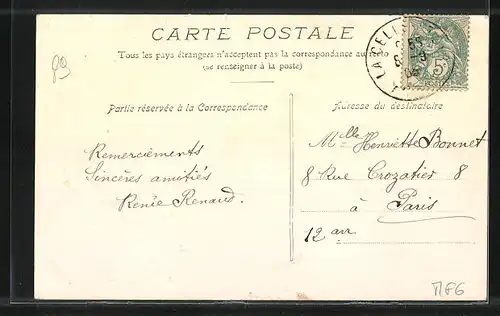 89
CARTE POSTALE
Tous les pays étrangers n'acceptent pas la correspondance au recto
(se renseigner à la poste)
LA CELLE
5
Partie réservée à la Correspondance
Adresse du destinataire
Remerciements
Sincères amitiés
Renée Renaud.
Melle Henriette Bonnet
8 Rue Crozatier 8
à Paris
12 arr
M86